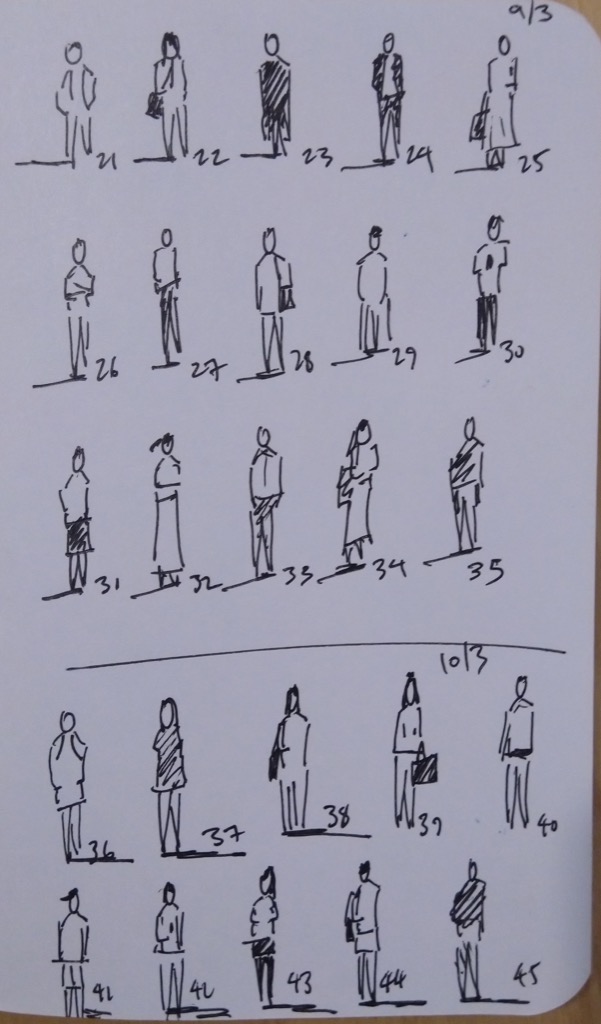 9/3
21 22 23 24 25
26 27 28 29 30
31 32 33 34 35
10/3
36 37 38 39 40
41 42 43 44 45